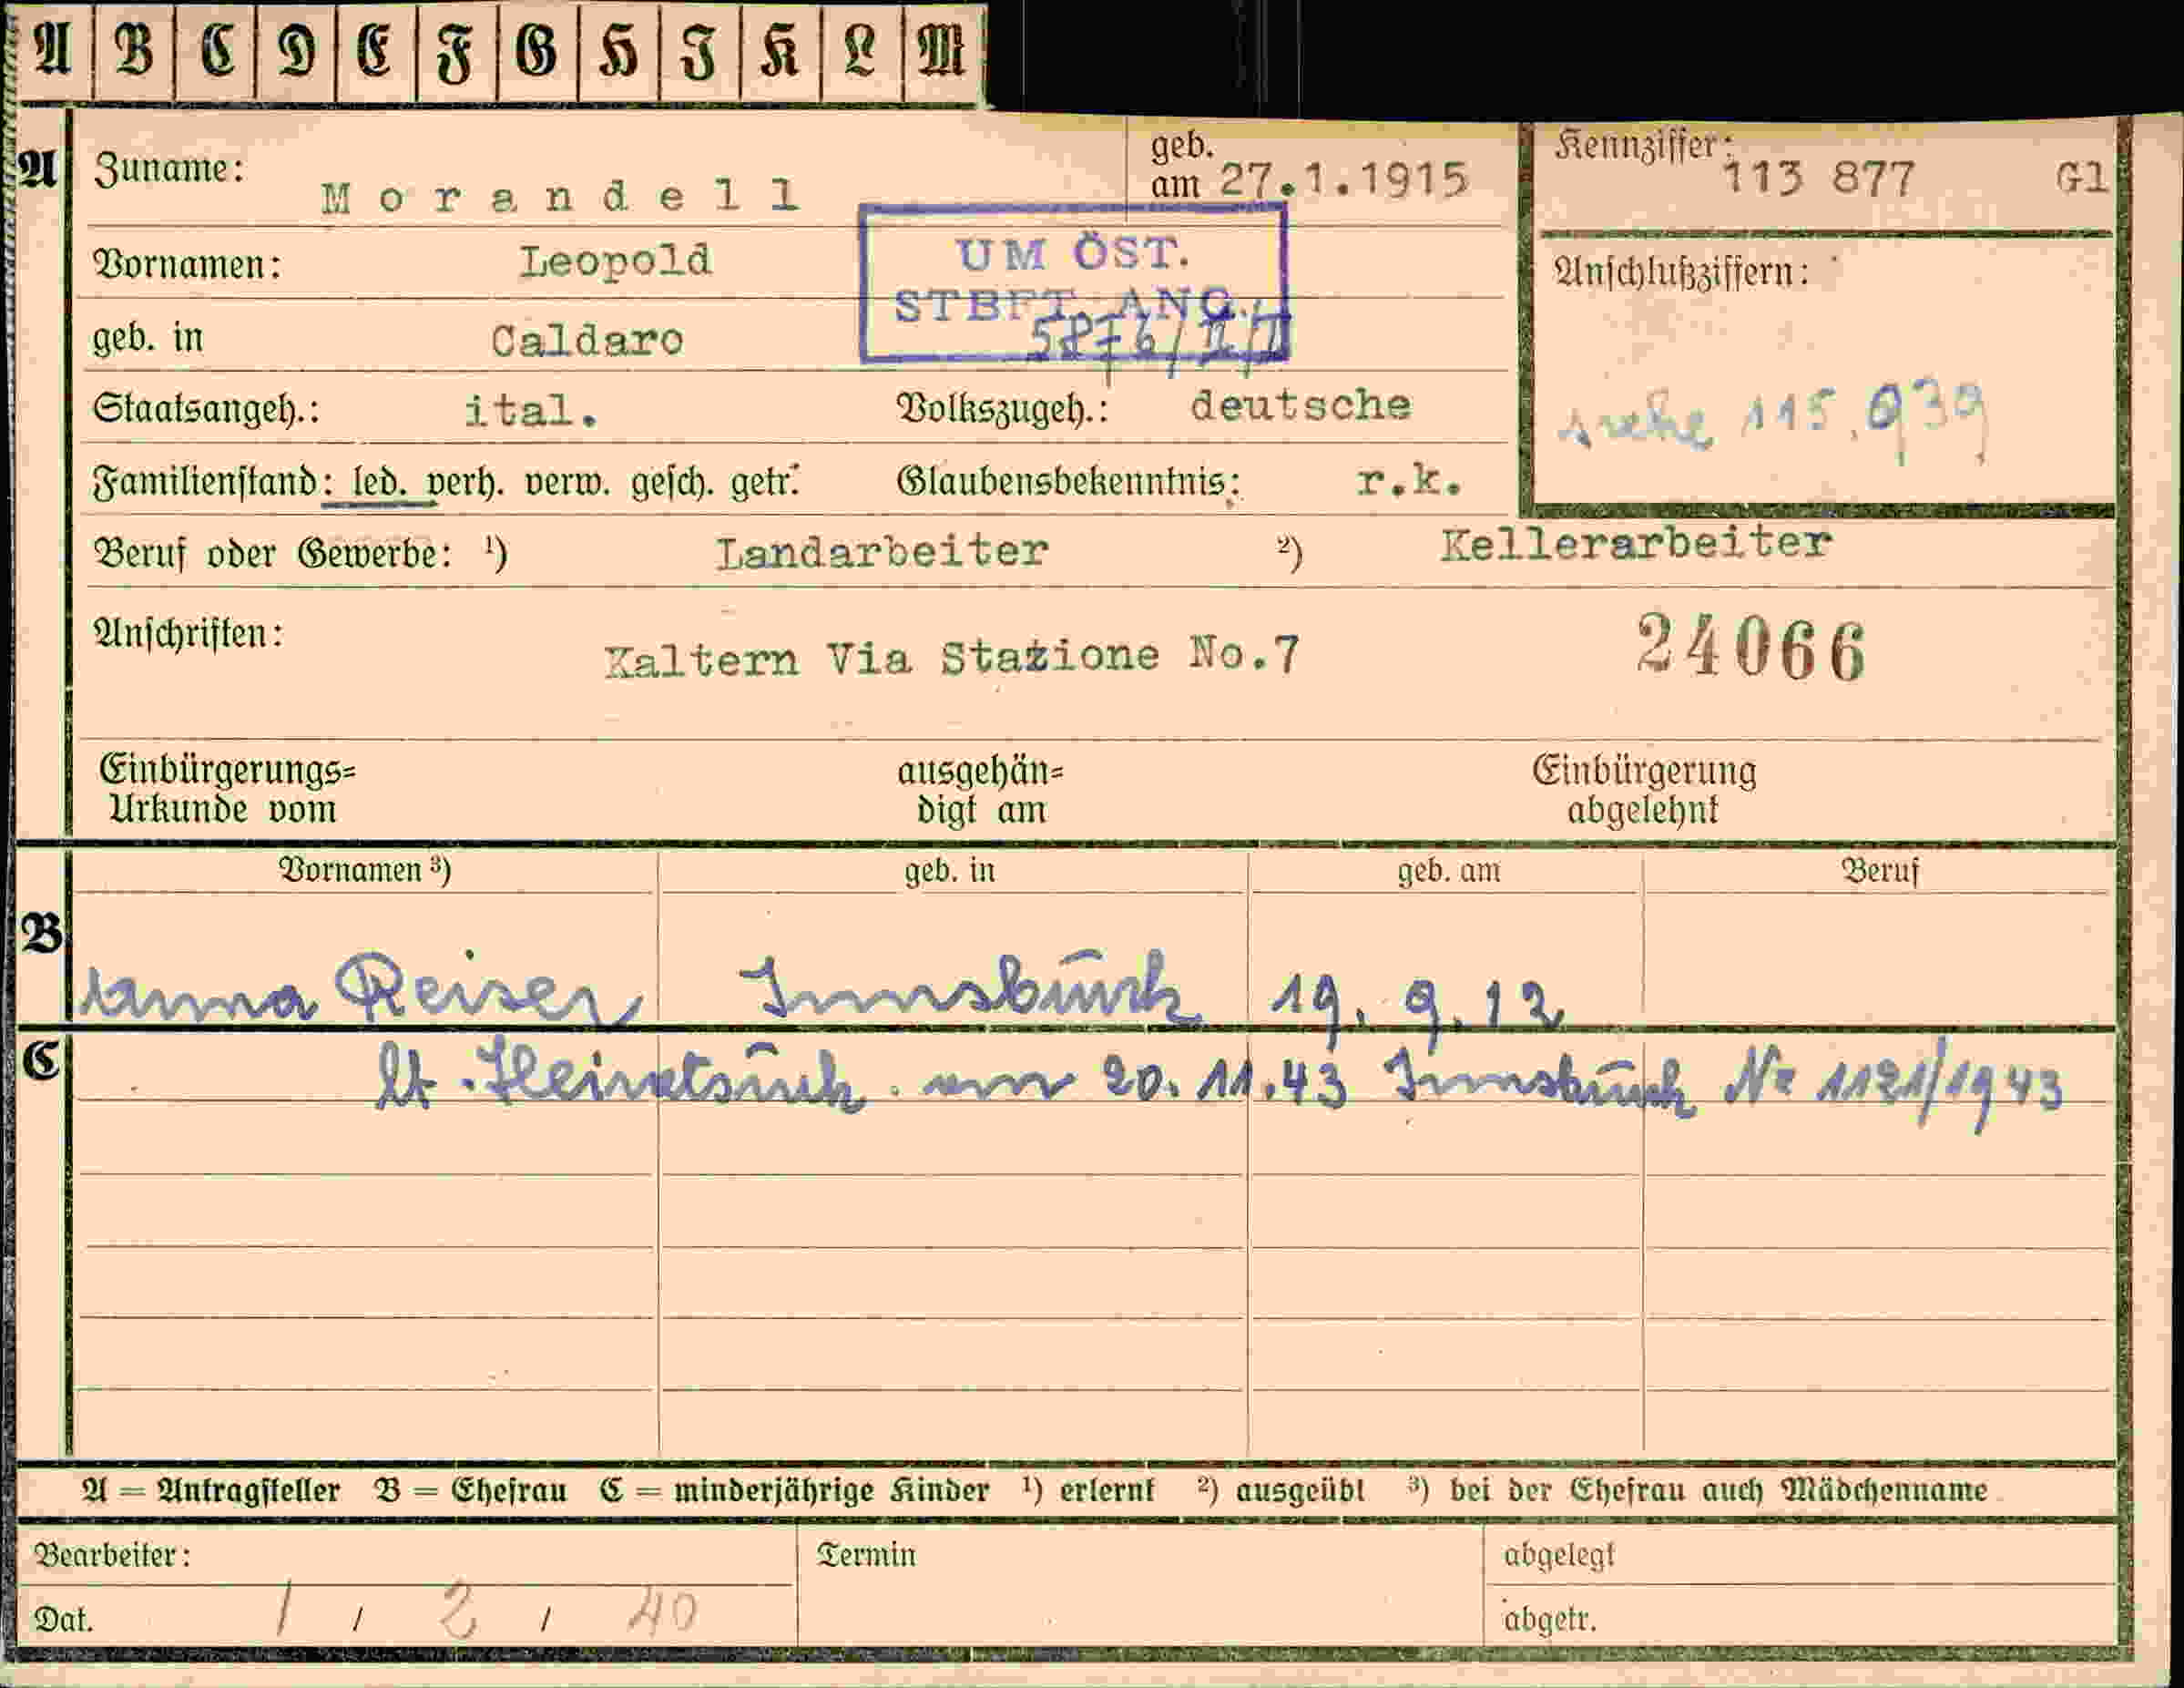 A B C D E F G H J K L M
A Zuname: Morandell geb. am 27.1.1915 Kennziffer: 113 877 Gl
Vornamen: Leopold UM ÖST. Anschlußziffern:
STBFT. ANG.
geb. in Caldaro 5876/II/
siehe 115.939
Staatsangeh.: ital. Volkszugeh.: deutsche
Familienstand: led. verh. verw. gesch. getr. Glaubensbekenntnis: r.k.
Beruf oder Gewerbe: ¹) Landarbeiter ²) Kellerarbeiter
Anschriften: Kaltern Via Stazione No.7 24066
Einbürgerungs= ausgehän= Einbürgerung
Urkunde vom digt am abgelehnt
Vornamen ³) geb. in geb. am Beruf
B Anna Reiser Innsbruck 19. 9. 12
C lt. Heiratsurk. vom 20. 11. 43 Innsbruck Nr 1121/1943
A = Antragsteller B = Ehefrau C = minderjährige Kinder ¹) erlernt ²) ausgeübt ³) bei der Ehefrau auch Mädchenname
Bearbeiter: Termin abgelegt
Dat. 1 / 2 / 40 abgetr.